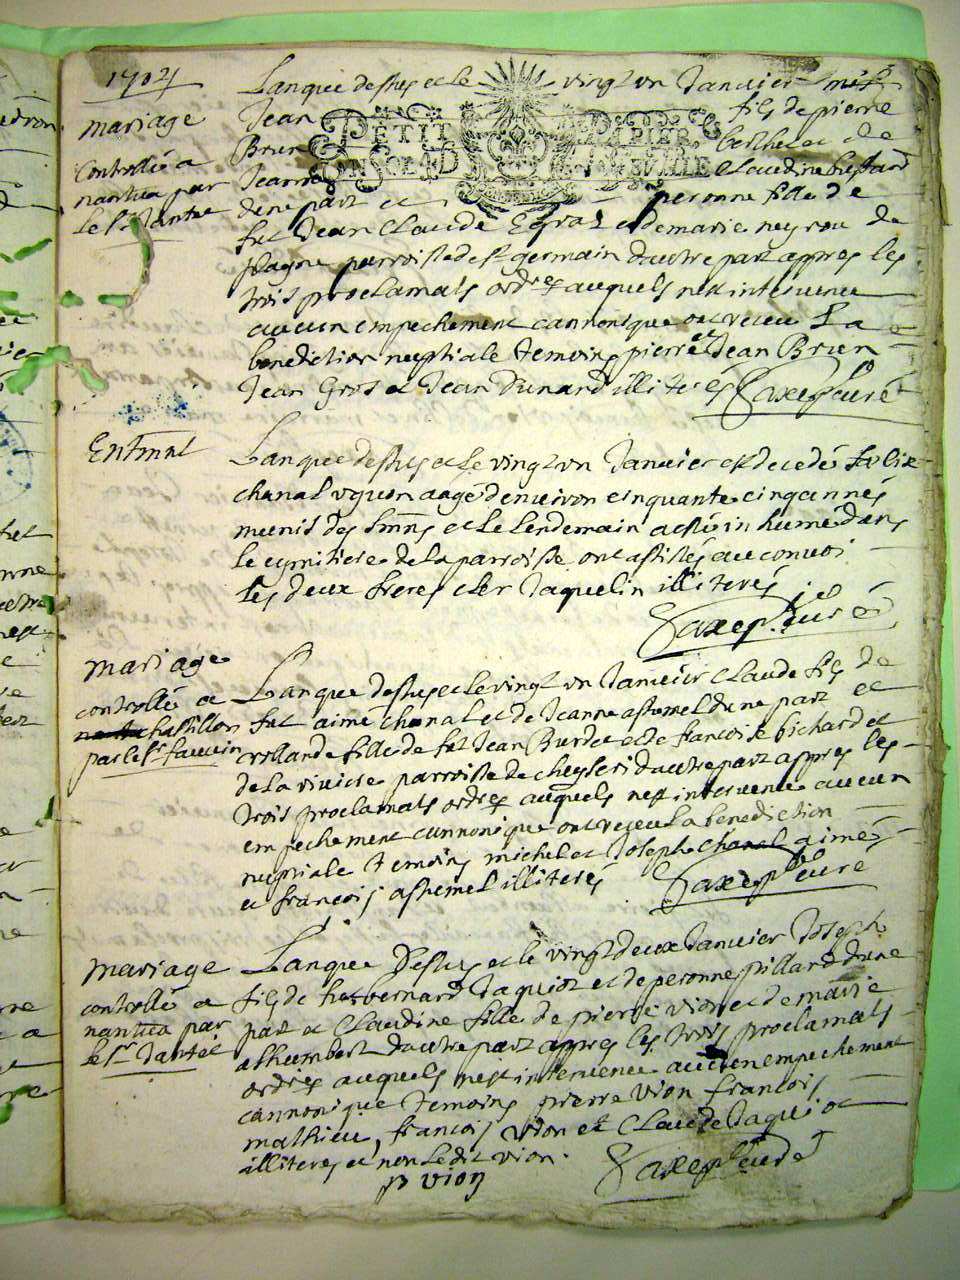 1704
mariage
controllé a
nantua par
le Sr Tantet
Lan que dessus et le vingt un Janvier
Jean fils de pierre
Brun berthet et de
Jeanne Claudine bessard
dune part et peronne fille de
fut Jean Claude Egraz et de marie neyrou de
plagne parroisse de st germain dautre part appres les
trois proclamats ordres auquels nest intervenue
aucun empechement cannonique ont receu La
benediction nuptiale temoins pierre et Jean Brun
Jean Gros et Jean Dunard illiteres
PETIT PAPIER
Enterrmt
Lan que dessus et le vingt un Janvier est decedé
chanal vguon aagé denviron cinquante cinq annés
munit des Smns et le Lendemain a esté inhumé dans
le cymitiere de la parroisse ont assistés au convoi
les deux freres cler Jaquelin illiterés
curé
mariage
controllé a
chastillon
par le Sr fauvin
Lan que dessus et le vingt un Janvier Claude fils de
fut aimé chanal et de Jeanne assumel dune part et
rollande fille de fut Jean Burdet et de francoise bichard et
de la riviere parroisse de cheyseri dautre part appres les
trois proclamats ordres auquels nest intervenue aucun
empechement cannonique ont receu la benediction
nuptiale temoins michel et Joseph chanal aimé
et francois assumel illiterés
curé
mariage
controllé a
nantua par
le Sr Tantet
Lan que Dessus et le vingt deux Janvier Joseph
fils de bernard Jaquiot et de peronne pillard dune
part et Claudine fille de pierre vion et de marie
alhumbert dautre part appres les trois proclamats
ordres auquels nest intervenue aucun empechement
cannonique temoins pierre vion francois
mathieu, francois vion et Claude Jaquiot
illiteres et non ledit vion.
p vion
curé